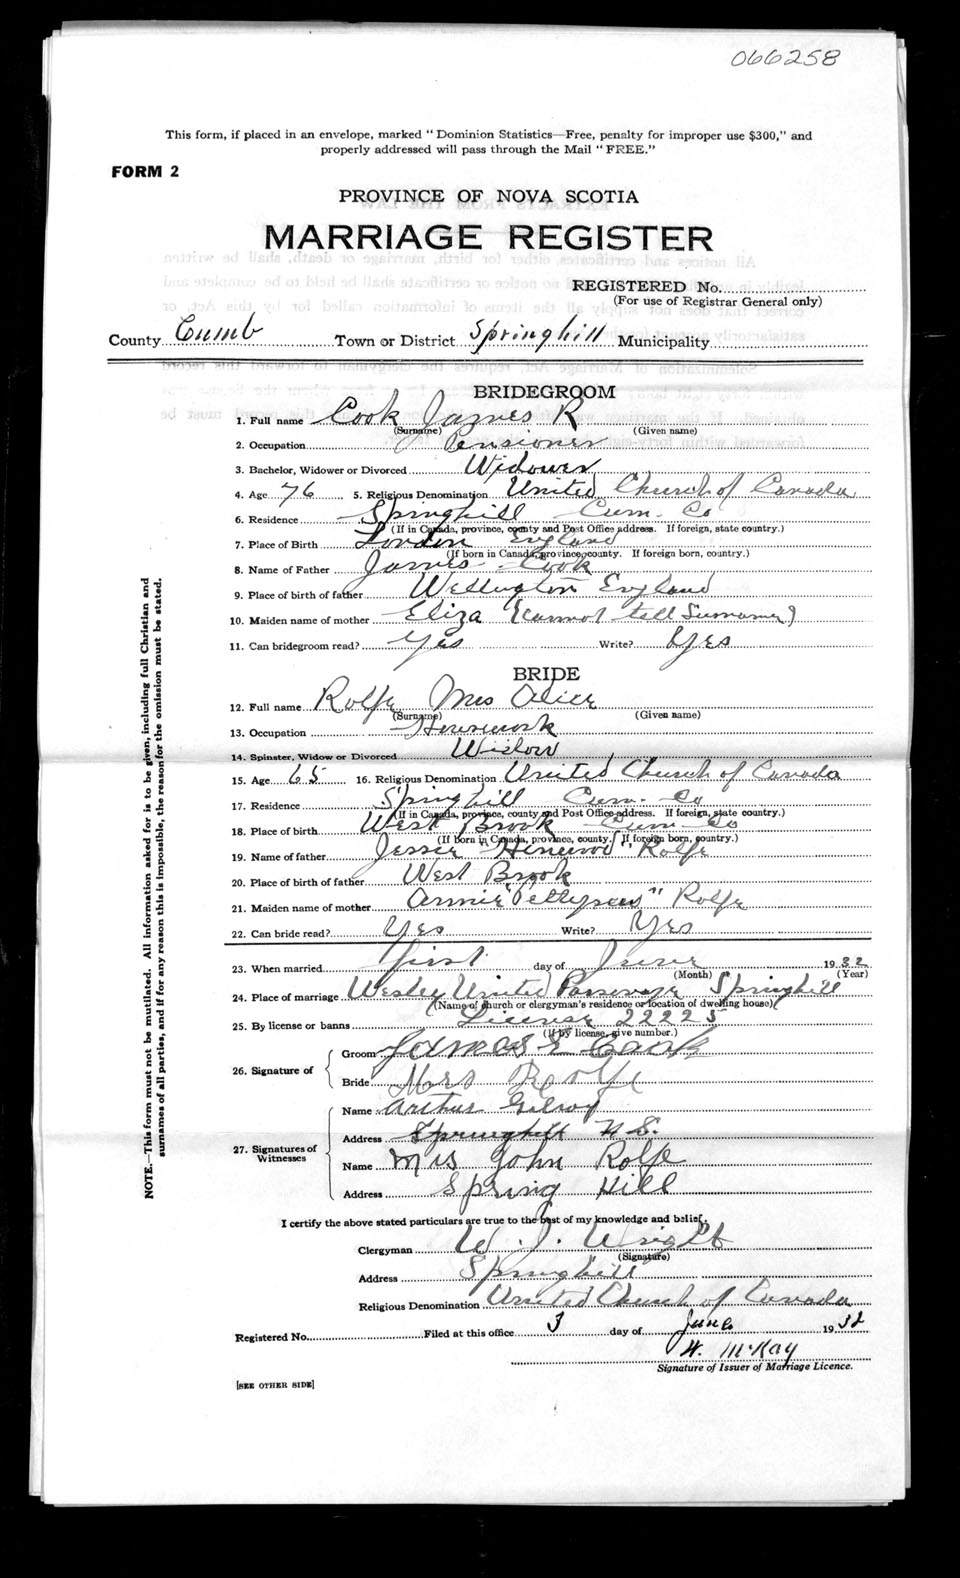 066258
This form, if placed in an envelope, marked "Dominion Statistics—Free, penalty for improper use $300," and
properly addressed will pass through the Mail "FREE."
FORM 2
PROVINCE OF NOVA SCOTIA
MARRIAGE REGISTER
REGISTERED No.
(For use of Registrar General only)
County Cumb Town or District Springhill Municipality
BRIDEGROOM
1. Full name Cook James R
(Surname) (Given name)
2. Occupation Pensioner
3. Bachelor, Widower or Divorced Widower
4. Age 76 5. Religious Denomination United Church of Canada
6. Residence Springhill Cum. Co
(If in Canada, province, county and Post Office address. If foreign, state country.)
7. Place of Birth London England
(If born in Canada, province, county. If foreign born, country.)
8. Name of Father James Cook
9. Place of birth of father Wellington England
10. Maiden name of mother Eliza (Cannot tell Surname)
11. Can bridegroom read? Yes Write? Yes
BRIDE
12. Full name Rolfe Mrs Alice
(Surname) (Given name)
13. Occupation Housework
14. Spinster, Widow or Divorced Widow
15. Age 65 16. Religious Denomination United Church of Canada
17. Residence Springhill Cum. Co
(If in Canada, province, county and Post Office address. If foreign, state country.)
18. Place of birth West Brook Cum. Co
(If born in Canada, province, county. If foreign born, country.)
19. Name of father Jesse " " Rolfe
20. Place of birth of father West Brook
21. Maiden name of mother Annie " " Rolfe
22. Can bride read? Yes Write? Yes
23. When married first day of June 1932
(Month) (Year)
24. Place of marriage Wesley United Parsonage Springhill
(Name of church or clergyman's residence or location of dwelling house)
25. By license or banns License 22225
(If by license, give number.)
26. Signature of
Groom James E Cook
Bride Mrs Rolfe
27. Signatures of Witnesses
Name Arthur Gilroy
Address Springhill N S.
Name Mrs John Rolfe
Address Spring Hill
I certify the above stated particulars are true to the best of my knowledge and belief.
Clergyman W. J. Wright
(Signature)
Address Springhill
Religious Denomination United Church of Canada
Registered No. Filed at this office 3 day of June 1932
H. McKay
Signature of Issuer of Marriage Licence.
[SEE OTHER SIDE]
NOTE.—This form must not be mutilated. All information asked for is to be given, including full Christian and
surnames of all parties, and if for any reason this is impossible, the reason for the omission must be stated.